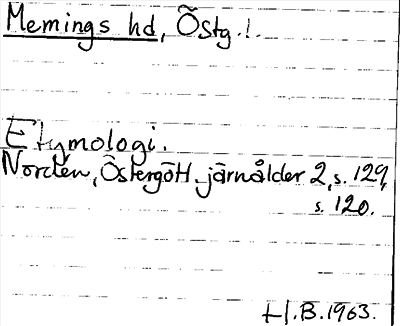 Memings hd, Östg.l.
Etymologi.
Norden, Östergött. järnålder 2, s. 129,
s. 120.
H.B. 1963.